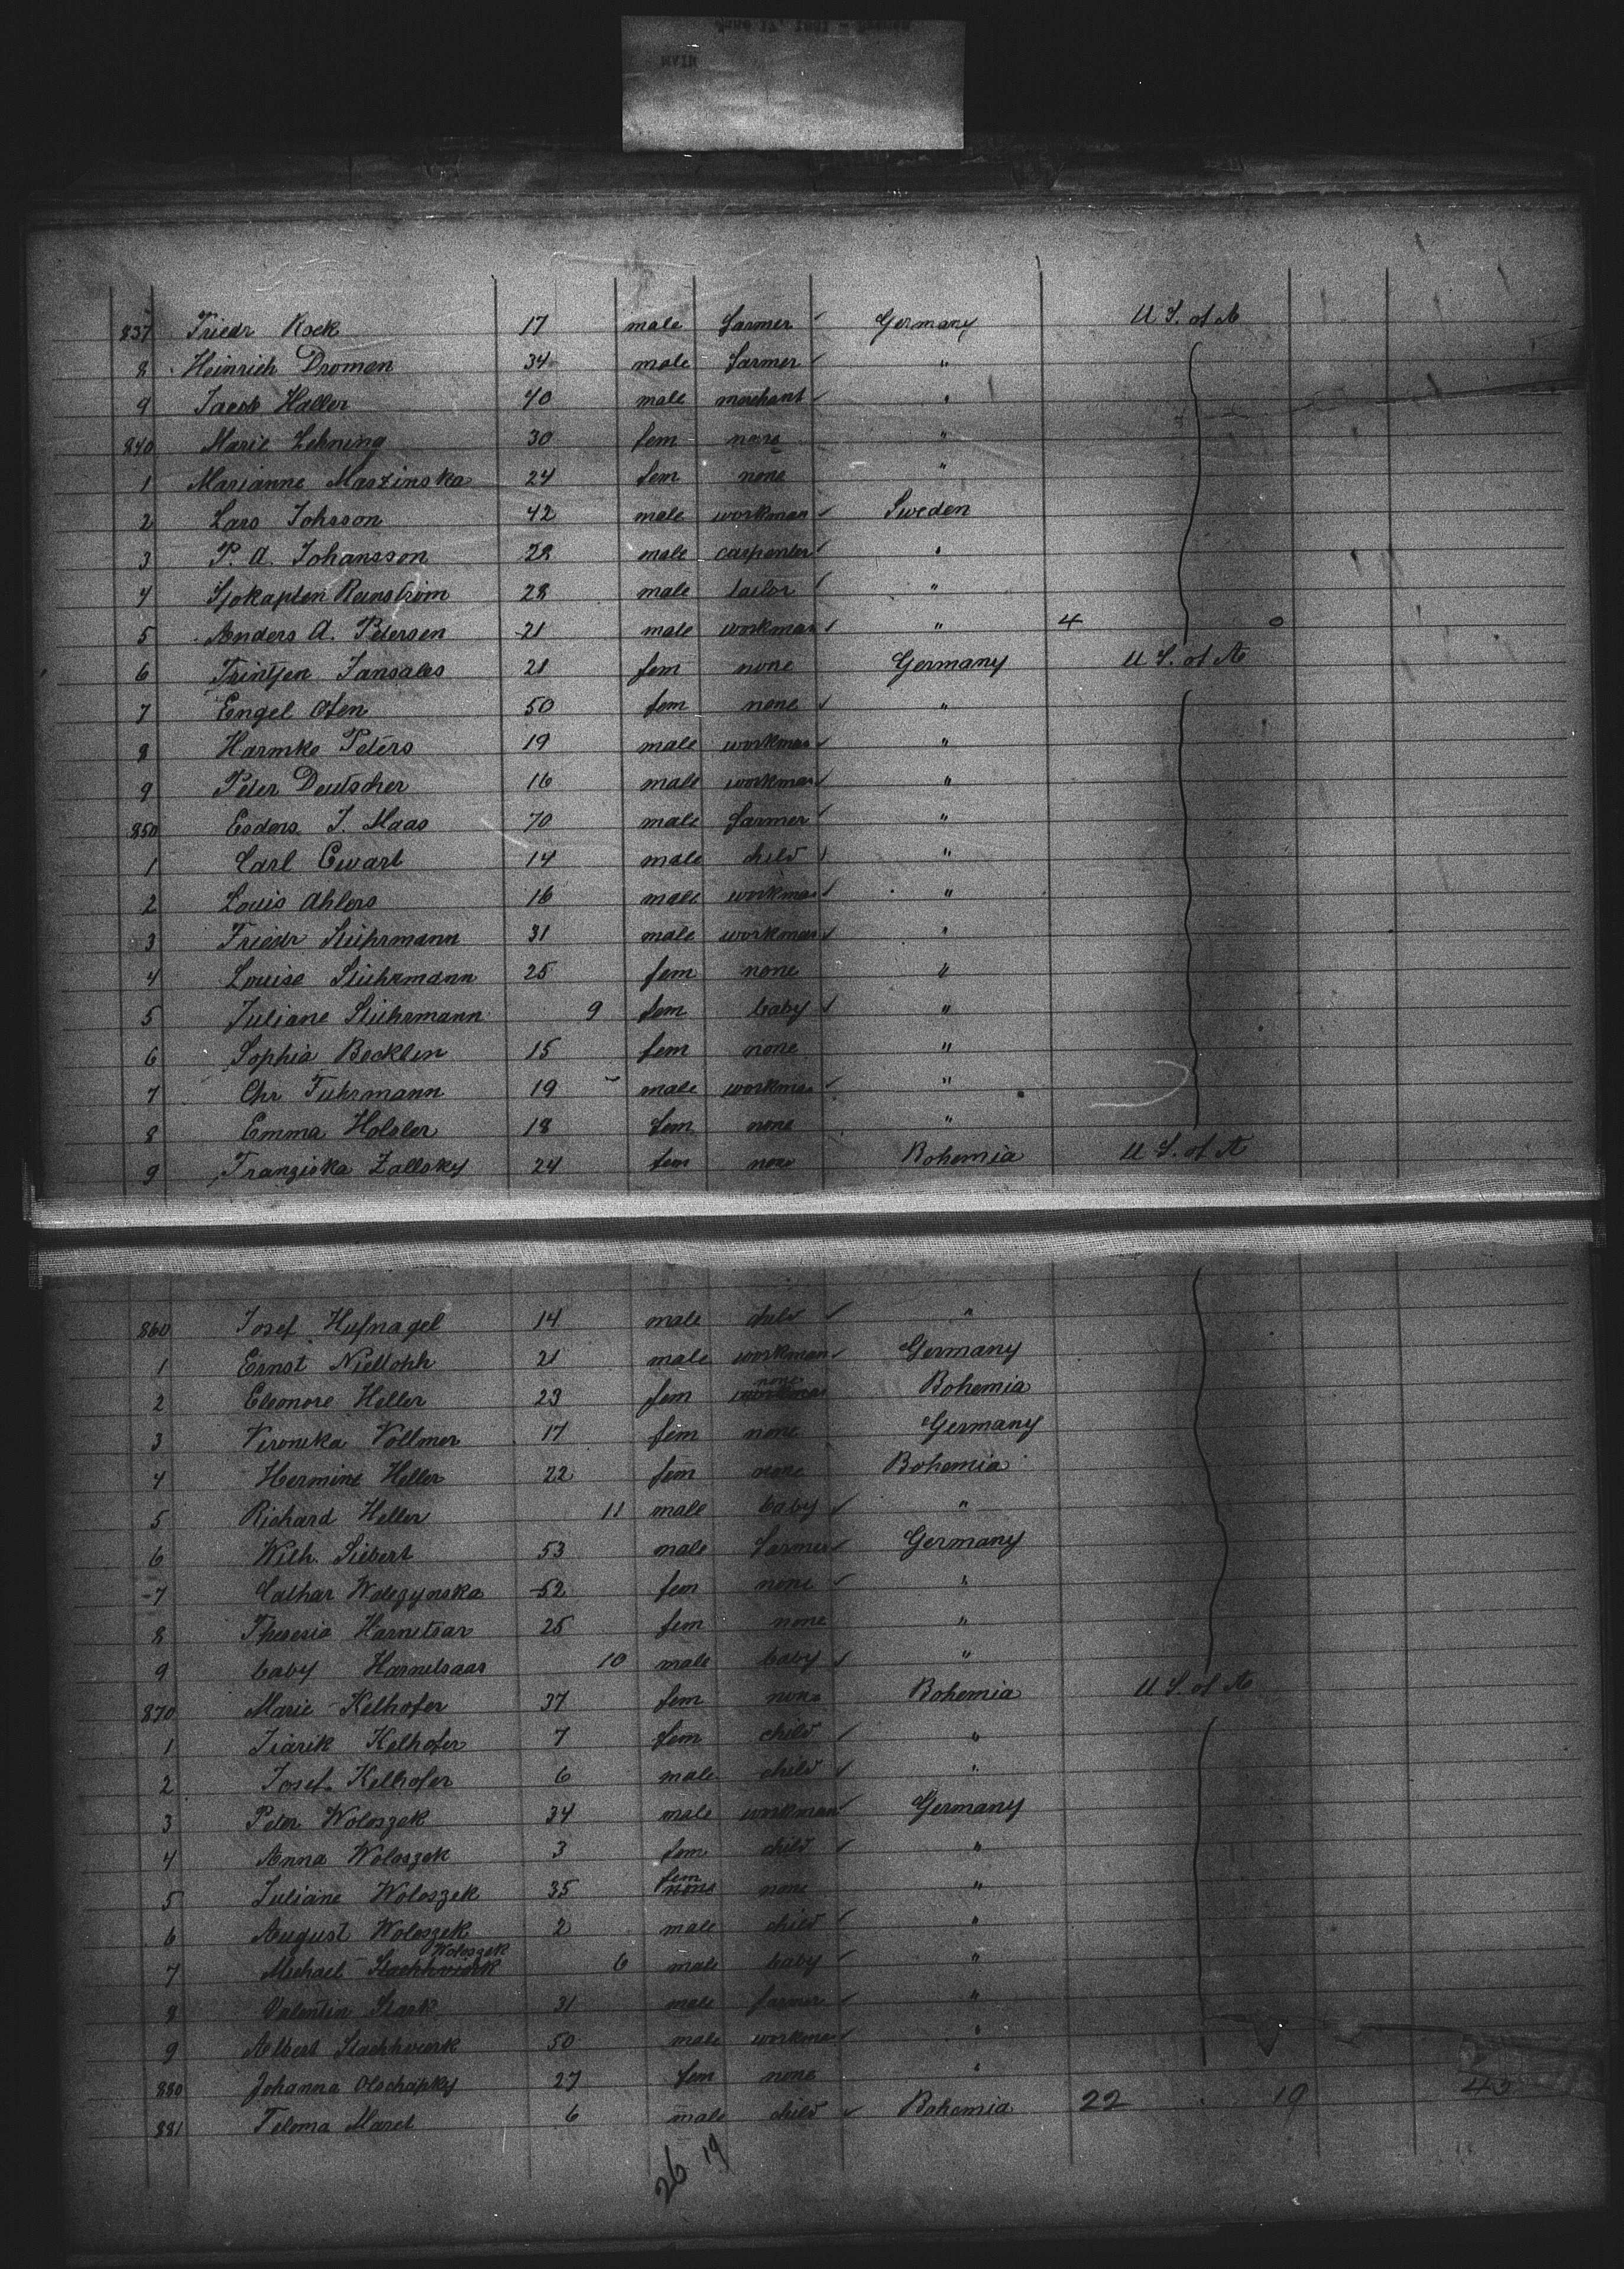 837 Friedr Kock 17 male farmer ✓ Germany U S. of A
8 Heinrich Dromen 34 male farmer ✓ "
9 Jacob Haller 40 male merchant ✓ "
840 Marie Lehning 30 fem none "
1 Marianne Maszinska 24 fem none "
2 Lars Johsson 42 male workman ✓ Sweden
3 P. A. Johansson 28 male carpenter ✓ "
4 Sjokapten Renstrom 28 male tailor ✓ "
5 Anders A. Petersen 21 male workman ✓ " 4 0
6 Trintjen Jansales 21 fem none Germany U S. of A
7 Engel Ofen 50 fem none ✓ "
8 Harmke Peters 19 male workman ✓ "
9 Peter Deutscher 16 male workman ✓ "
850 Esders J. Maas 70 male farmer ✓ "
1 Carl Ewart 14 male child ✓ "
2 Louis Ahlers 16 male workman ✓ "
3 Friedr Stührmann 31 male workman ✓ "
4 Louise Stuhrmann 25 fem none "
5 Juliane Stührmann 9 fem baby ✓ "
6 Sophia Becklen 15 fem none "
7 Chr Fuhrmann 19 male workman ✓ "
8 Emma Holsler 18 fem none "
9 Franziska Zallsky 24 fem none Bohemia U S. of A
860 Josef Hufnagel 14 male child ✓ "
1 Ernst 21 male workman ✓ Germany
none
2 Eleonore Heller 23 fem workman Bohemia
3 Veronika Vollmer 17 fem none Germany
4 Hermine Heller 22 fem none Bohemia
5 Richard Heller 11 male baby ✓ "
6 Wilh. Siebert 53 male farmer ✓ Germany
7 Cathar Wolezynska 52 fem none ✓ "
8 Theresia Harnetsar 25 fem none "
9 baby Harnetsaar 10 male baby ✓ "
870 Marie Kelhofer 37 fem none Bohemia U S. of A
1 Kelhofer 7 fem child ✓ "
2 Josef Kelhofer 6 male child ✓ "
3 Peter Woloszek 34 male workman ✓ Germany
4 Anna Woloszek 3 fem child ✓ "
fem
5 Juliane Woloszek 35 none none "
6 August Woloszek 2 male child ✓ "
Woloszek
7 Michael Stachhwiak 6 male baby ✓ "
8 Valentin Stark 31 male farmer ✓ "
9 Albert 50 male workman ✓ "
880 Johanna Olschapky 27 fem none "
881 Teloma Maret 6 male child ✓ Bohemia 22 19 45
26 19